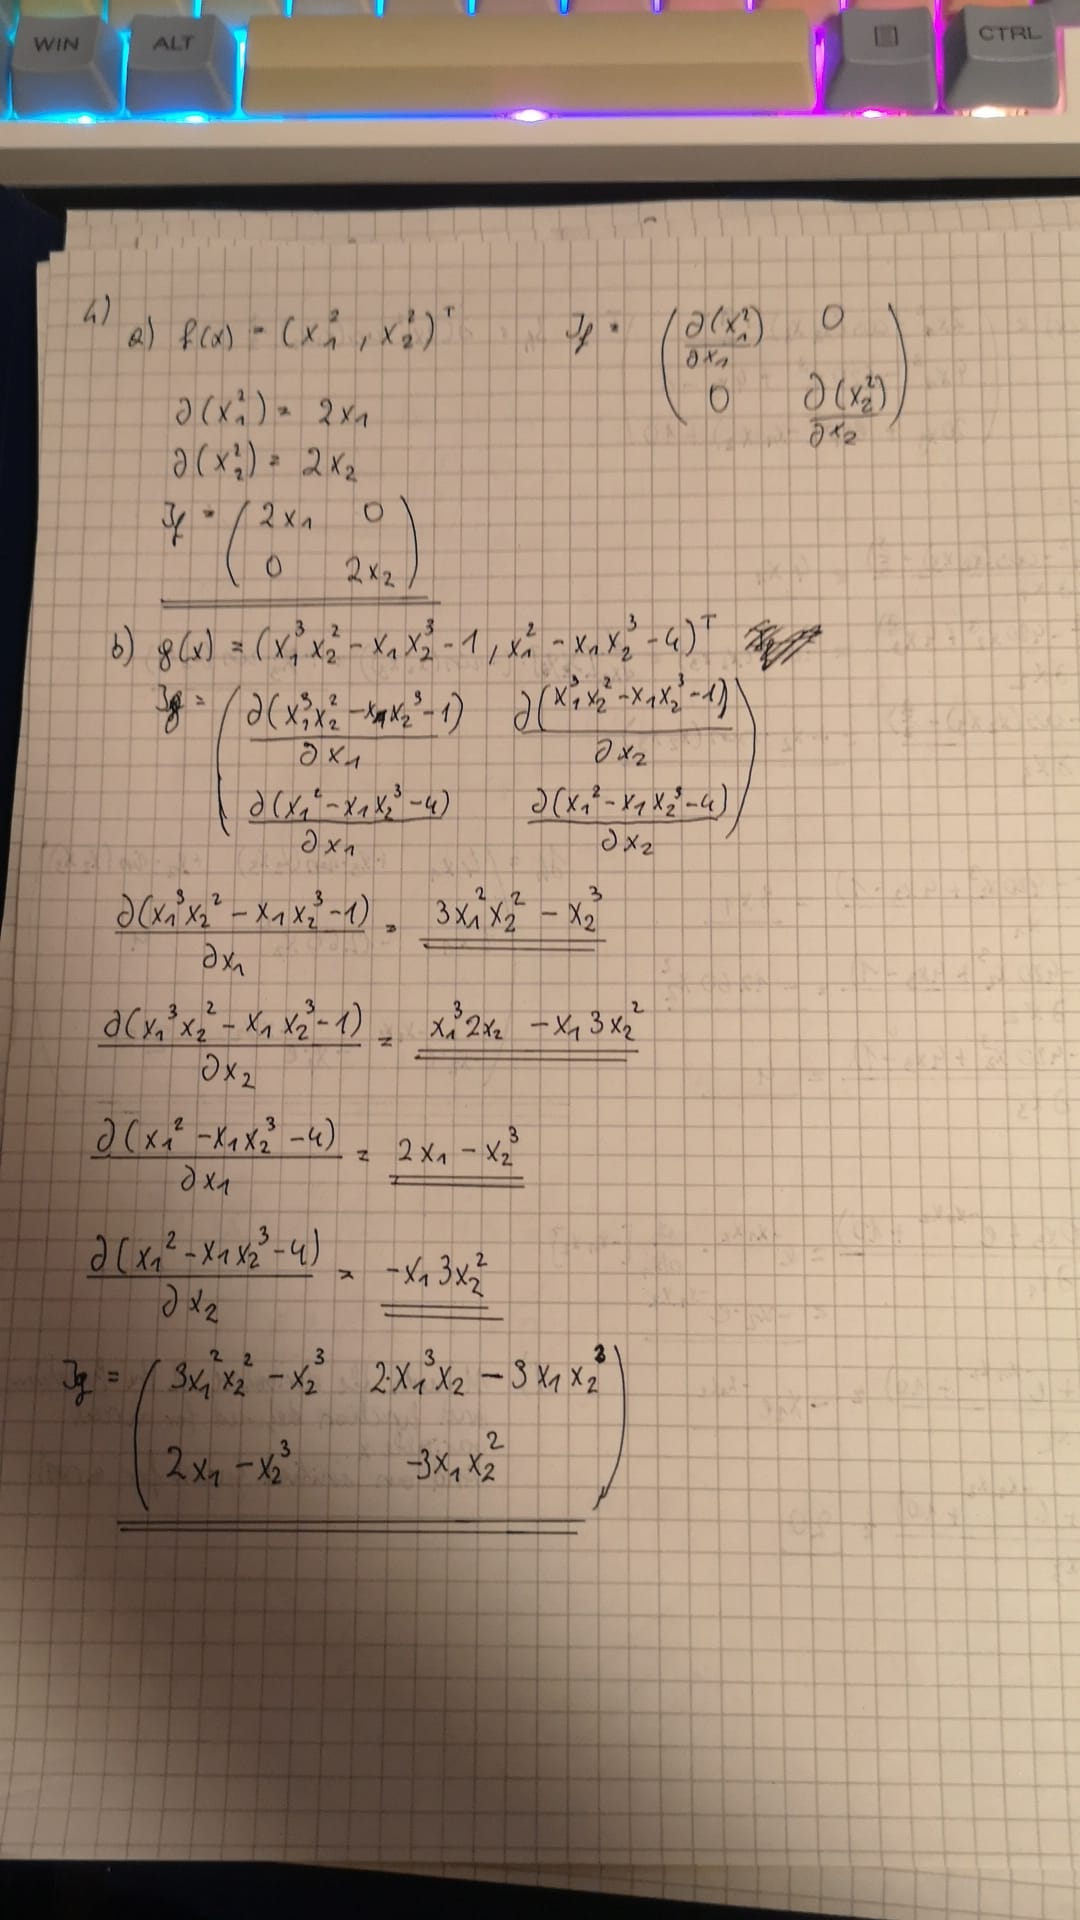 WIN ALT CTRL
4)
a) f(x) = (x₁², x₂²)ᵀ J_f = ( ∂(x₁²)/∂x₁ 0
0 ∂(x₂²)/∂x₂ )
∂(x₁²) = 2x₁
∂(x₂²) = 2x₂
J_f = ( 2x₁ 0
0 2x₂ )
b) g(x) = (x₁³x₂² - x₁x₂³ - 1, x₁² - x₁x₂³ - 4)ᵀ
J_g = ( ∂(x₁³x₂² - x₁x₂³ - 1)/∂x₁ ∂(x₁³x₂² - x₁x₂³ - 1)/∂x₂
∂(x₁² - x₁x₂³ - 4)/∂x₁ ∂(x₁² - x₁x₂³ - 4)/∂x₂ )
∂(x₁³x₂² - x₁x₂³ - 1)/∂x₁ = 3x₁²x₂² - x₂³
∂(x₁³x₂² - x₁x₂³ - 1)/∂x₂ = x₁³2x₂ - x₁3x₂²
∂(x₁² - x₁x₂³ - 4)/∂x₁ = 2x₁ - x₂³
∂(x₁² - x₁x₂³ - 4)/∂x₂ = -x₁3x₂²
J_g = ( 3x₁²x₂² - x₂³ 2·x₁³x₂ - 3x₁x₂³
2x₁ - x₂³ -3x₁x₂² )